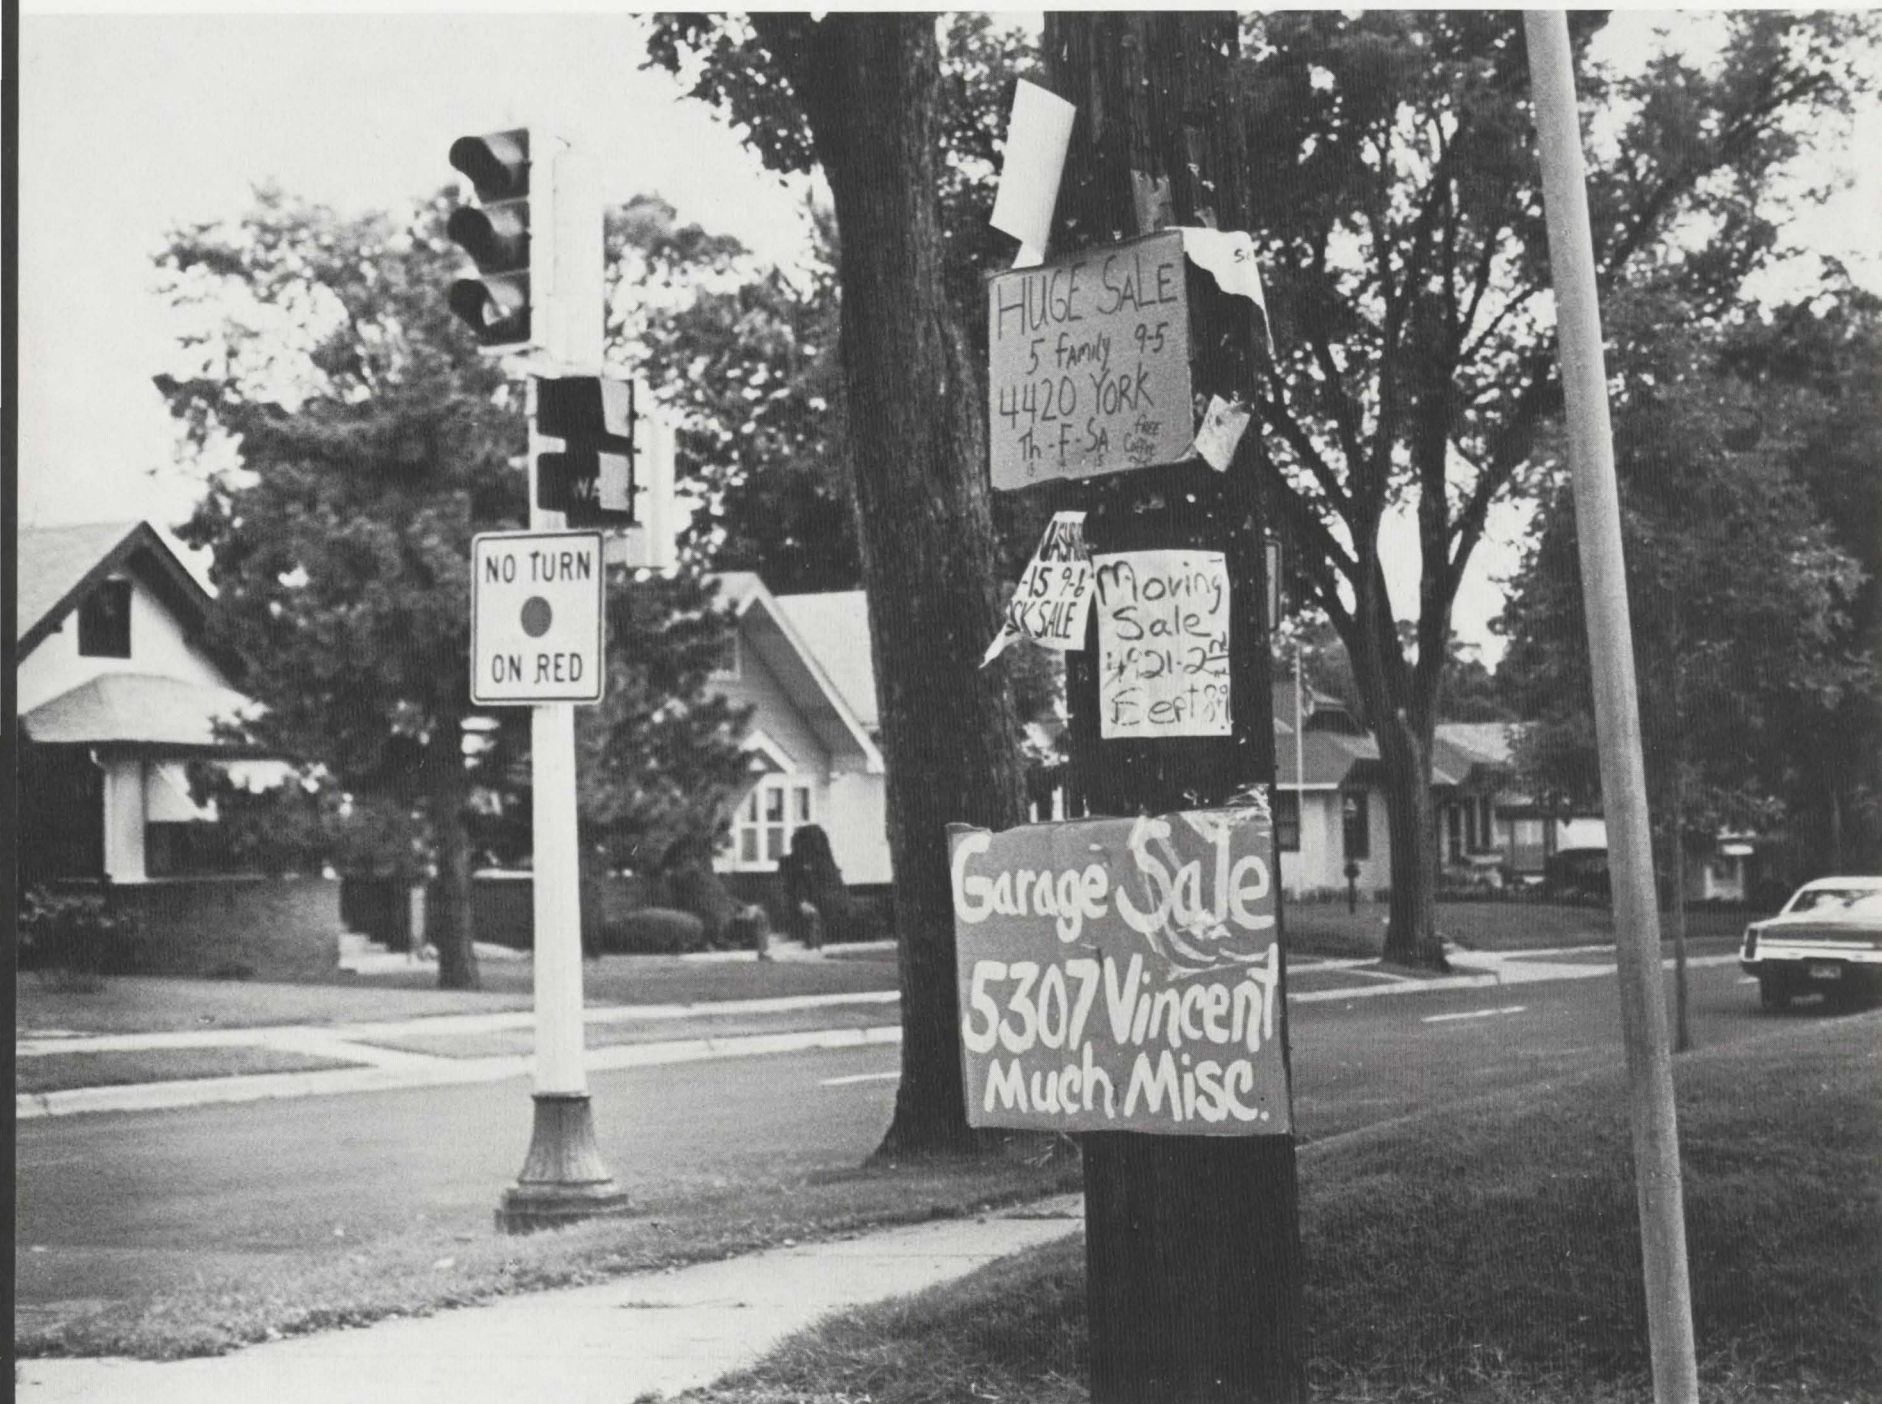 NO TURN
ON RED
HUGE SALE
5 family 9-5
4420 YORK
Th-F-SA FREE
Coffee
-15 9-6
SALE
Moving
Sale
4921-2nd
Sept
Garage Sale
5307 Vincent
Much Misc.